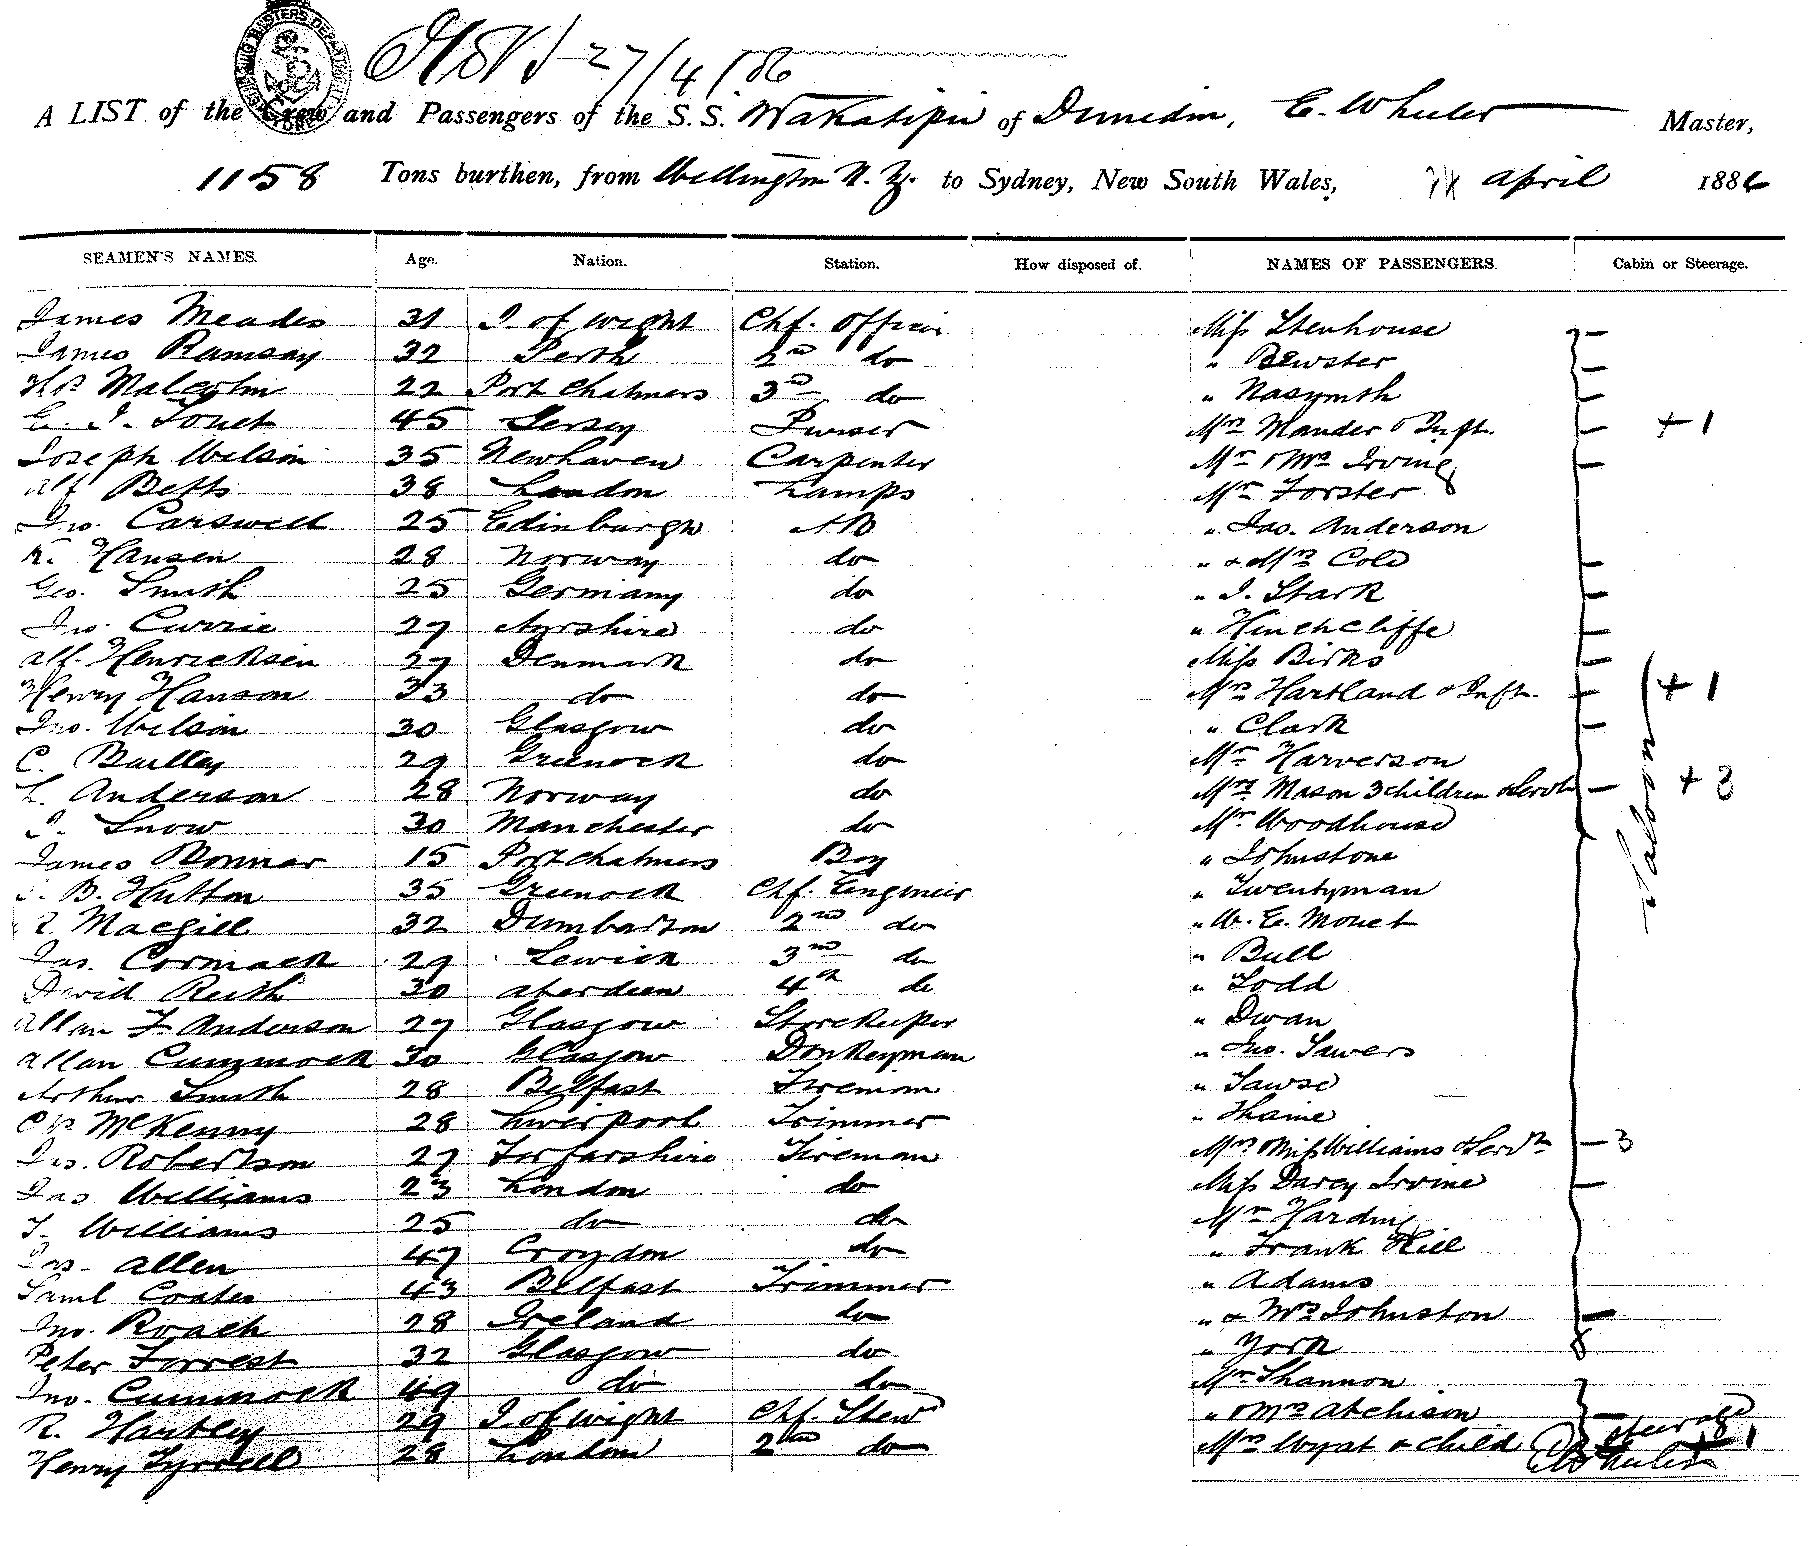 27/4/86
A LIST of the Crew and Passengers of the S.S. Wakatipu of Dunedin, E. Wheeler Master,
1158 Tons burthen, from Wellington N.Z. to Sydney, New South Wales, April 1886
SEAMEN'S NAMES. Age. Nation. Station. How disposed of. NAMES OF PASSENGERS. Cabin or Steerage.
James Meades 31 I. of Wight Chf. Officer Miss Stenhouse
James Ramsay 32 Perth 2nd do " Bewster
Malcolm 22 Port Chalmers 3rd do " Nasymth
E. J. Touet 45 Jersey Purser Mrs Mander & Inft. +1
Joseph Wilson 35 Newhaven Carpenter Mr & Mrs Irving
Alf Betts 38 London Lamps Mr Forster
Jno. Carswell 25 Edinburgh AB " Jas. Anderson
K. Hansen 28 Norway do " & Mrs Cold
Geo. Smith 25 Germany do " J. Stark
Jno. Currie 27 Ayrshire do " Hinchcliffe
Alf. Henricksen 27 Denmark do Miss Birks
Henry Hanson 33 do do Mrs Hartland & Inft. +1
Jno. Wilson 30 Glasgow do " Clark
C. Bailley 29 Greenock do Mr Harverson
L. Anderson 28 Norway do Mrs Mason 3 children & Servt +3 Saloon
J. Snow 30 Manchester do Mr Woodhouse
James Bonnar 15 Port Chalmers Boy " Johnstone
B. Hutton 35 Greenock Chf. Engineer " Twentyman
R Macgill 32 Dumbarton 2nd do " W. E. Mouet
Jas. Cormack 29 Lewick 3rd do " Bull
David Reith 30 Aberdeen 4th do " Todd
Allan F Anderson 27 Glasgow Storekeeper " Dwan
Allan Cummock 30 Glasgow Donkeyman " Jno. Sawers
Arthur Smith 28 Belfast Fireman " Tawse
McKenny 28 Liverpool Trimmer " Thaine
Jas. Robertson 27 Forfarshire Fireman Mrs Miss Williams & Servt 3
Jas Williams 23 London do Miss Darcy Irvine
T. Williams 25 do do Mr Harding
Jas. Allen 47 Croydon do " Frank Hill
Saml Coates 43 Belfast Trimmer " Adams
Jno. Roach 28 Ireland do " & Mrs Johnston
Peter Forrest 32 Glasgow do " York
Jno. Cummock 49 do do Mr Shannon
R. Hartley 29 I. of Wight Chf. Stewd " & Mrs Atchison Steerage
Henry Tyrrell 28 London 2nd do Mrs Wyat & Child +1
E Wheeler